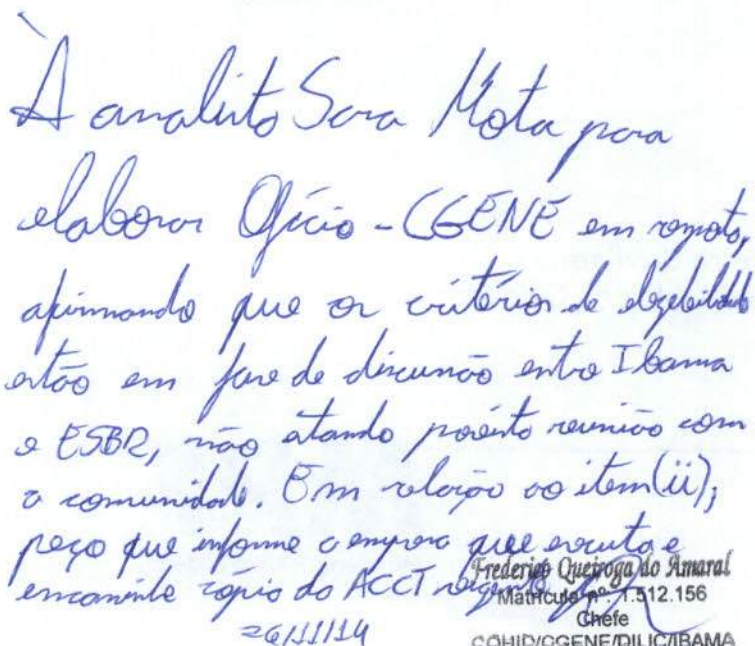 À analista Sara Mota para
elaborar Ofício - CGENE em resposta,
afirmando que os critérios de elegibilidade
estão em fase de discussão entre Ibama
e ESBR, não estando previsto reunião com
a comunidade. Em relação ao item (ii),
peço que informe a empresa que executa e
encaminhe cópia do ACCT
26/11/14
Frederico Queiroga do Amaral
Matrícula nº. 1.512.156
Chefe
COHID/CGENE/DILIC/IBAMA